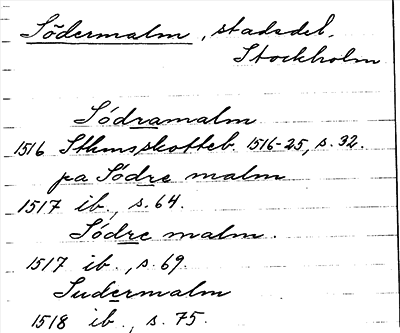 Södermalm, stadsdel.
Stockholm
Södramalm
1516 Sthmsskotteb. 1516-25, s. 32.
pa Södre malm
1517 ib., s. 64.
Södre malm.
1517 ib., s. 69.
Sudermalm
1518 ib., s. 75.